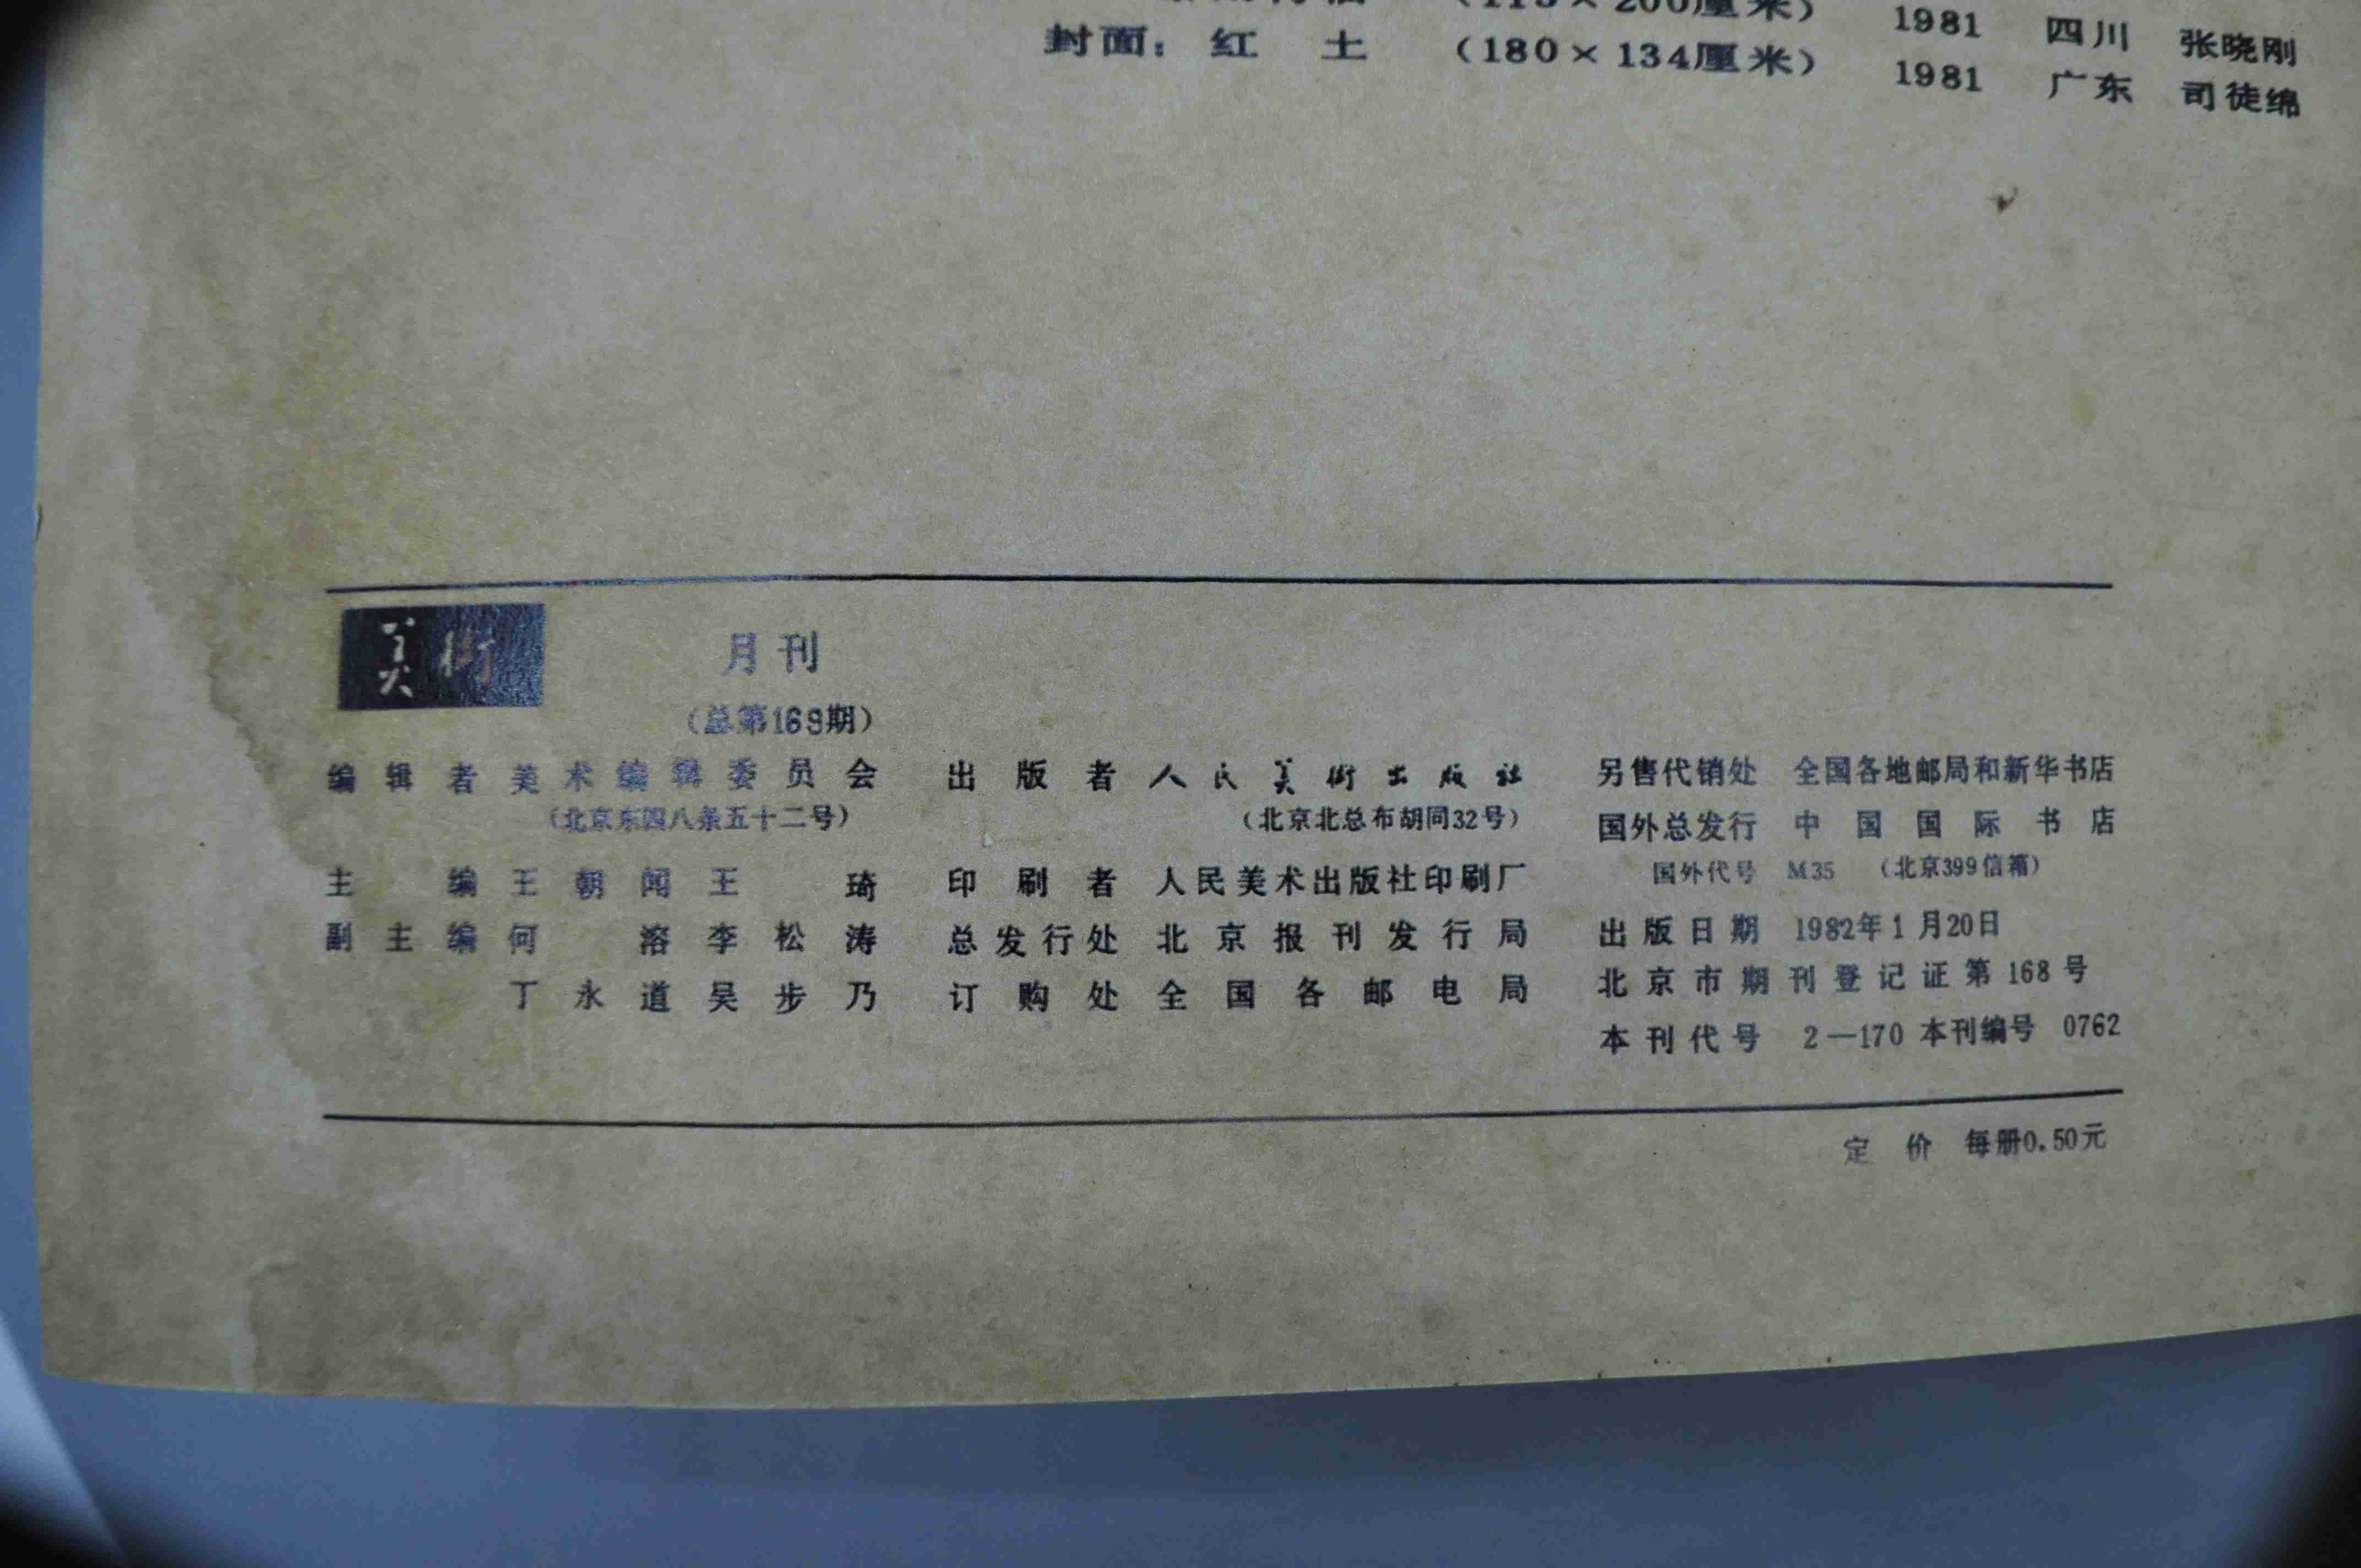 (115×200厘米) 1981 四川 张晓刚
封面：红土 (180×134厘米) 1981 广东 司徒绵
美術 月刊
(总第169期)
编辑者 美术编辑委员会
(北京东四八条五十二号)
主编 王朝闻 王琦
副主编 何溶 李松涛
丁永道 吴步乃
出版者 人民美術出版社
(北京北总布胡同32号)
印刷者 人民美术出版社印刷厂
总发行处 北京报刊发行局
订购处 全国各邮电局
另售代销处 全国各地邮局和新华书店
国外总发行 中国国际书店
国外代号 M35 (北京399信箱)
出版日期 1982年1月20日
北京市期刊登记证第168号
本刊代号 2—170 本刊编号 0762
定价 每册0.50元